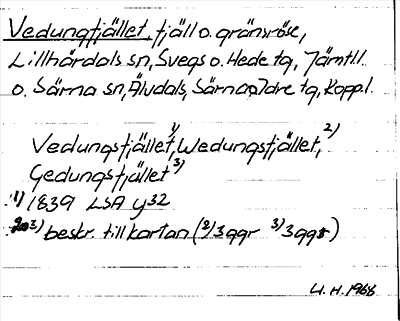 Vedungfjället, fjäll o. gränsröse,
Lillhärdals sn, Svegs o. Hede tg, Jämtl.l.
o. Särna sn, Älvdals, Särna o Idre tg, Kopp.l.
Vedungsfjället,1) Wedungsfjället,2)
Gedungsfjället3)
1) 1839 LSA y32
2 o 3) beskr. till kartan (2) 3qqr 3) 3qqs)
U.H. 1966